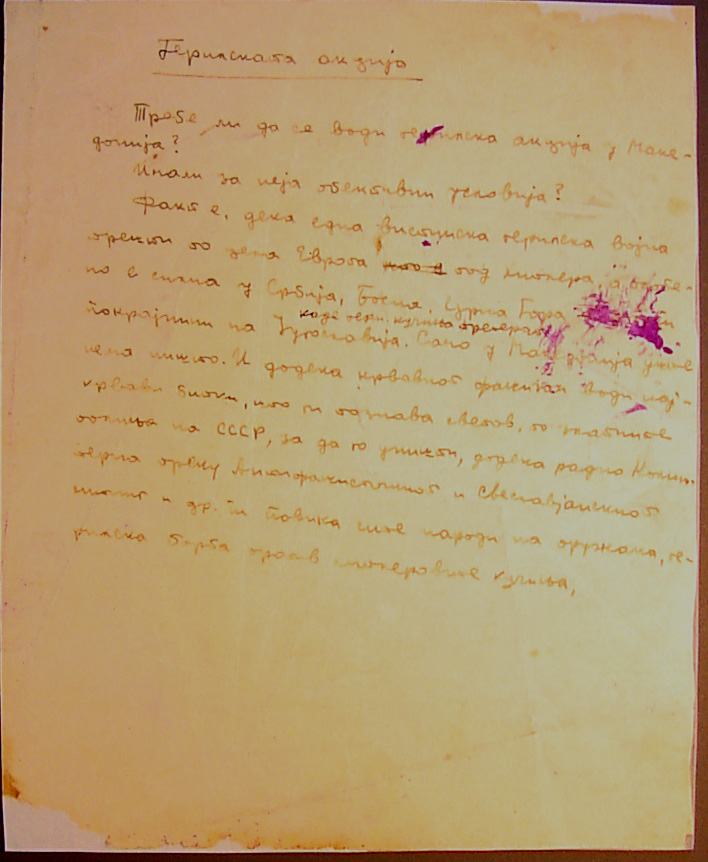 Герилската акција
Требе ли да се води герилска акција у Маке-
донија?
Инали за неја обективни условија?
Факт е, дека една вистинска герилска војна
пректи по цела Европа под хитлера, а особе-
но е силна у Србија, Босна, Цурна Гора
каде герм. кучища
покрајнини на Југославија. Само у Македонија уште
нема ништо. И додека крвавиот фашизам води нај-
крвави битки, што ги познава светов, по
на СССР, за да го уништи, додека радио Комин-
терна преку Антифашистичниот и Сеславјанскиот
и др. ги повика сите народи на оружана, ге-
рилска борба против хитлеровите кучища,